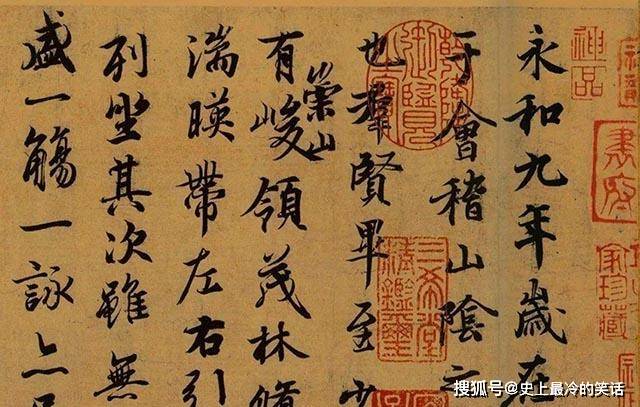 永和九年歲在
于會稽山陰之
也羣賢畢至少
有崇山峻領茂林脩
湍暎帶左右引
列坐其次雖無
盛一觴一詠亦足
神品
家珍藏
三希堂精鑑璽
搜狐号@史上最冷的笑话